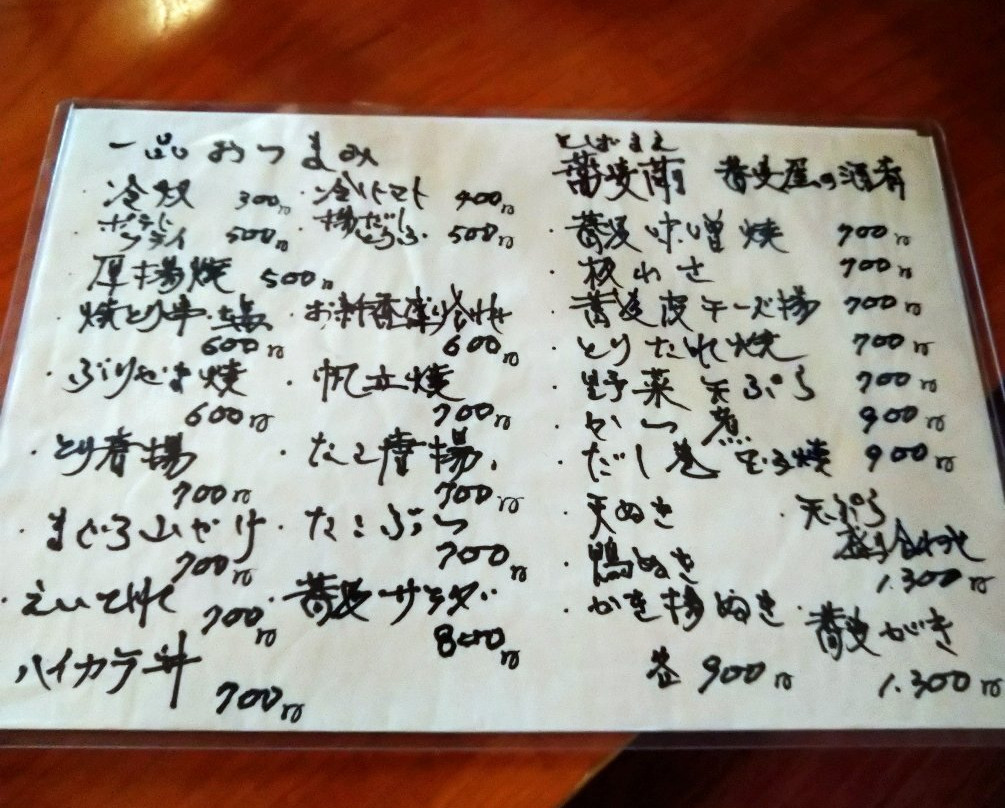 一品おつまみ
・冷奴 300円 ・冷トマト 400円
・ポテトフライ 500円 ・揚だしとうふ 500円
・厚揚焼 500円
焼とり串 600円
お新香盛り合わせ 600円
・ぶりかま焼 600円
・帆立焼 700円
・とり唐揚 700円
・たこ唐揚 700円
・まぐろ山かけ 700円
・たこぶつ 700円
・えいひれ 700円
・蕎麦サラダ 800円
ハイカラ丼 700円
としばまえ
蕎麦前 蕎麦屋の酒肴
・蕎麦味噌焼 700円
・板わさ 700円
・蕎麦皮チーズ揚 700円
・とりたれ焼 700円
・野菜天ぷら 700円
・かつ煮 900円
・だし巻玉子焼 900円
・天ぬき
・鴨ぬき
・かき揚ぬき
各900円
・天ぷら
盛り合わせ
1.300円
・蕎麦がき
1.300円